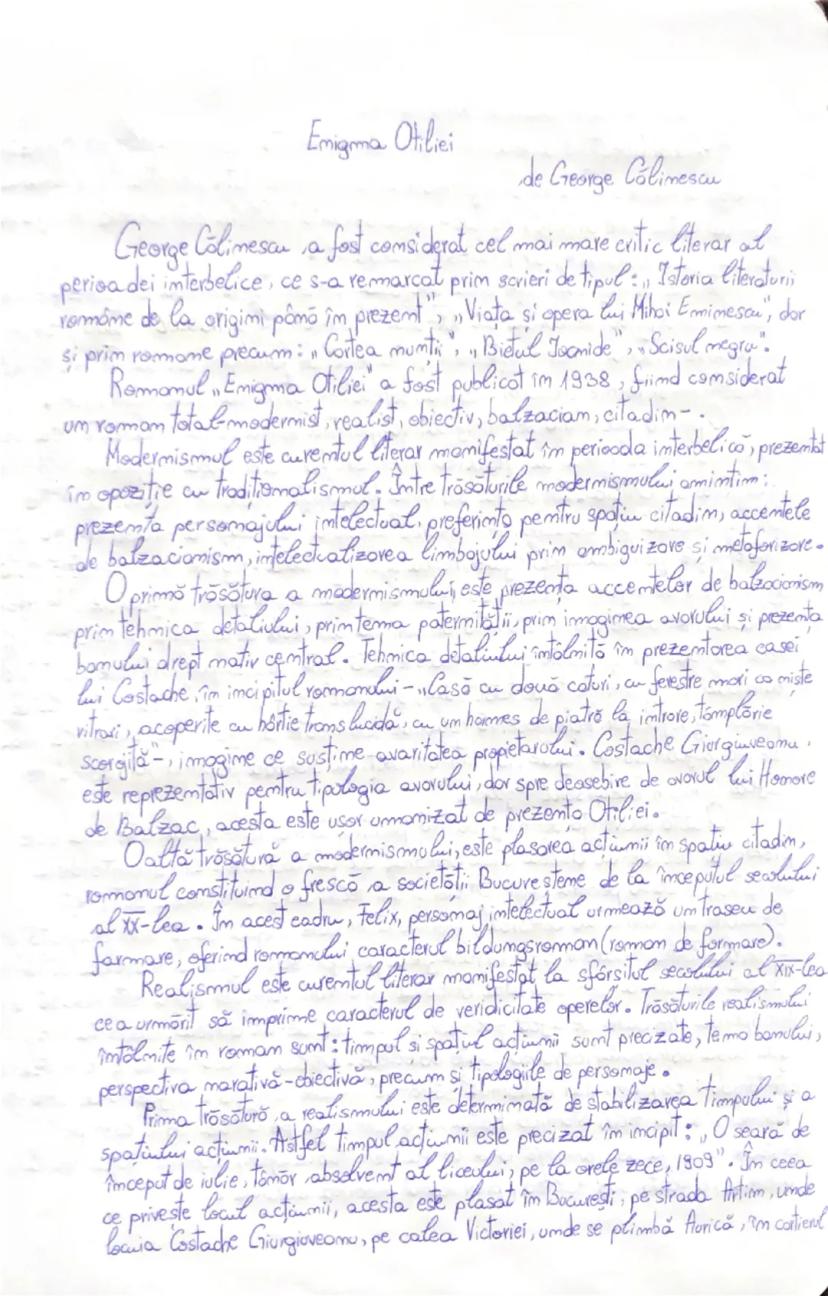 Enigma Otiliei
de George Călinescu
George Călinescu, a fost considerat cel mai mare critic literar al
perioadei interbelice, ce s-a remarcat prin scrieri de tipul: „Istoria literaturii
române de la origini până în prezent", „Viața și opera lui Mihai Eminescu", dar
și prin romane precum: „Cartea nunții", „Bietul Ioanide", „Scisul negru".
Romanul „Enigma Otiliei" a fost publicat în 1938, fiind considerat
un roman total-modernist, realist, obiectiv, balzacian, citadin-.
Modernismul este curentul literar manifestat în perioada interbelică, prezentat
în opoziție cu tradiționalismul. Între trăsăturile modernismului amintim:
prezența personajului intelectual, preferința pentru spațiu citadin, accentele
de balzacianism, intelectualizarea limbajului prin ambiguizare și metaforizare.
O primă trăsătura a modernismului, este prezența accentelor de balzacianism
prin tehnica detaliului, prin tema paternității, prin imaginea avarului și prezența
banului drept motiv central. Tehnica detaliului întâlnită în prezentarea casei
lui Costache, în incipitul romanului-„Casă cu două caturi, cu ferestre mari ca niște
vitrari, acoperite cu hârtie translucidă, cu un haimes de piatră la intrare, tâmplărie
scorojită"-, imagine ce susține avaritatea propietarului. Costache Giurgiuveanu,
este reprezentativ pentru tipologia avarului, dar spre deosebire de avarul lui Honore
de Balzac, acesta este ușor umanizat de prezența Otiliei.
O altă trăsătură a modernismului, este plasarea acțiunii în spațiu citadin,
romanul constituind o frescă a societății Bucureștene de la începutul secolului
al XX-lea. În acest cadru, Felix, personaj intelectual urmează un traseu de
formare, oferind romanului caracterul bildungsroman (roman de formare).
Realismul este curentul literar manifestat la sfârsitul secolului al XIX-lea
ce a urmărit să imprime caracterul de veridicitate operelor. Trăsăturile realismului
întâlnite în roman sunt: timpul și spațul acțiunii sunt precizate, tema banului,
perspectiva narativă-obiectivă, precum și tipologiile de personaje.
Prima trăsătură, a realismului este determinată de stabilizarea timpului și a
spațiului acțiunii. Astfel timpul acțiunii este precizat în incipit: „O seară de
început de iulie, tânăr, absolvent al liceului, pe la orele zece, 1909". În ceea
ce privește locul acțiunii, acesta este plasat în București, pe strada Antim, unde
locuia Costache Giurgiuveanu, pe calea Victoriei, unde se plimbă Aurică, în cartierul